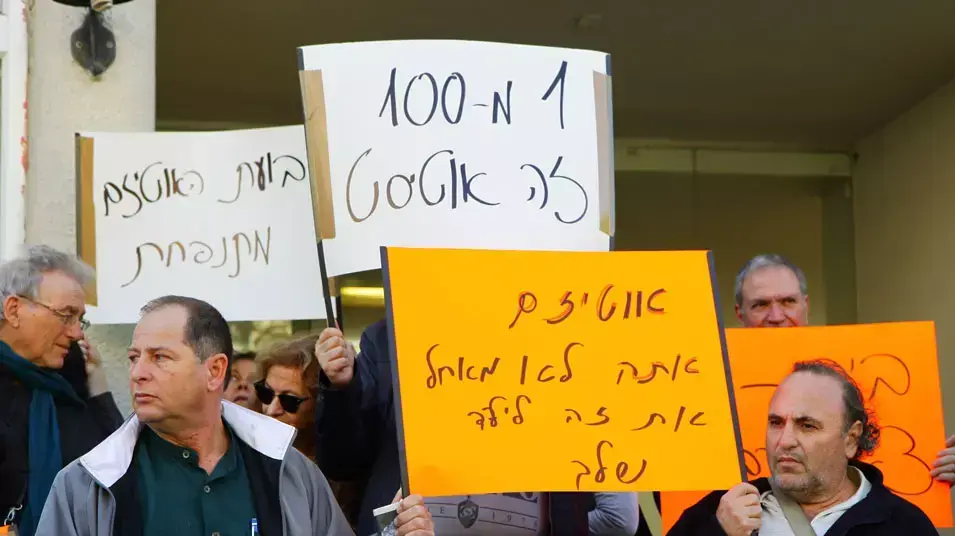 בועת האוטיזם
מתנפחת
1 מ-100
זה אוטיסט
אוטיזם
אתה לא מאחל
את זה לילד
שלך